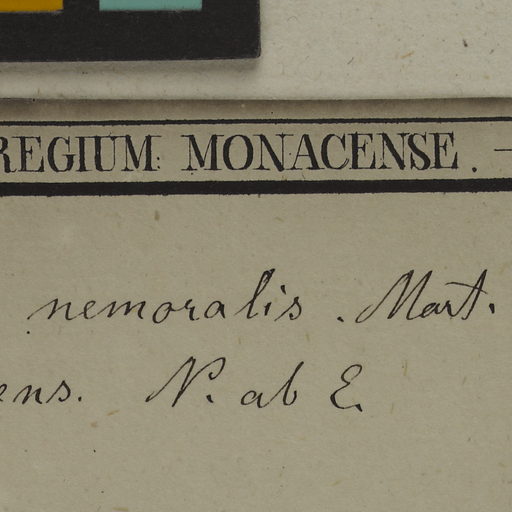 REGIUM MONACENSE. –
nemoralis. Mart.
ens. N. ab E.